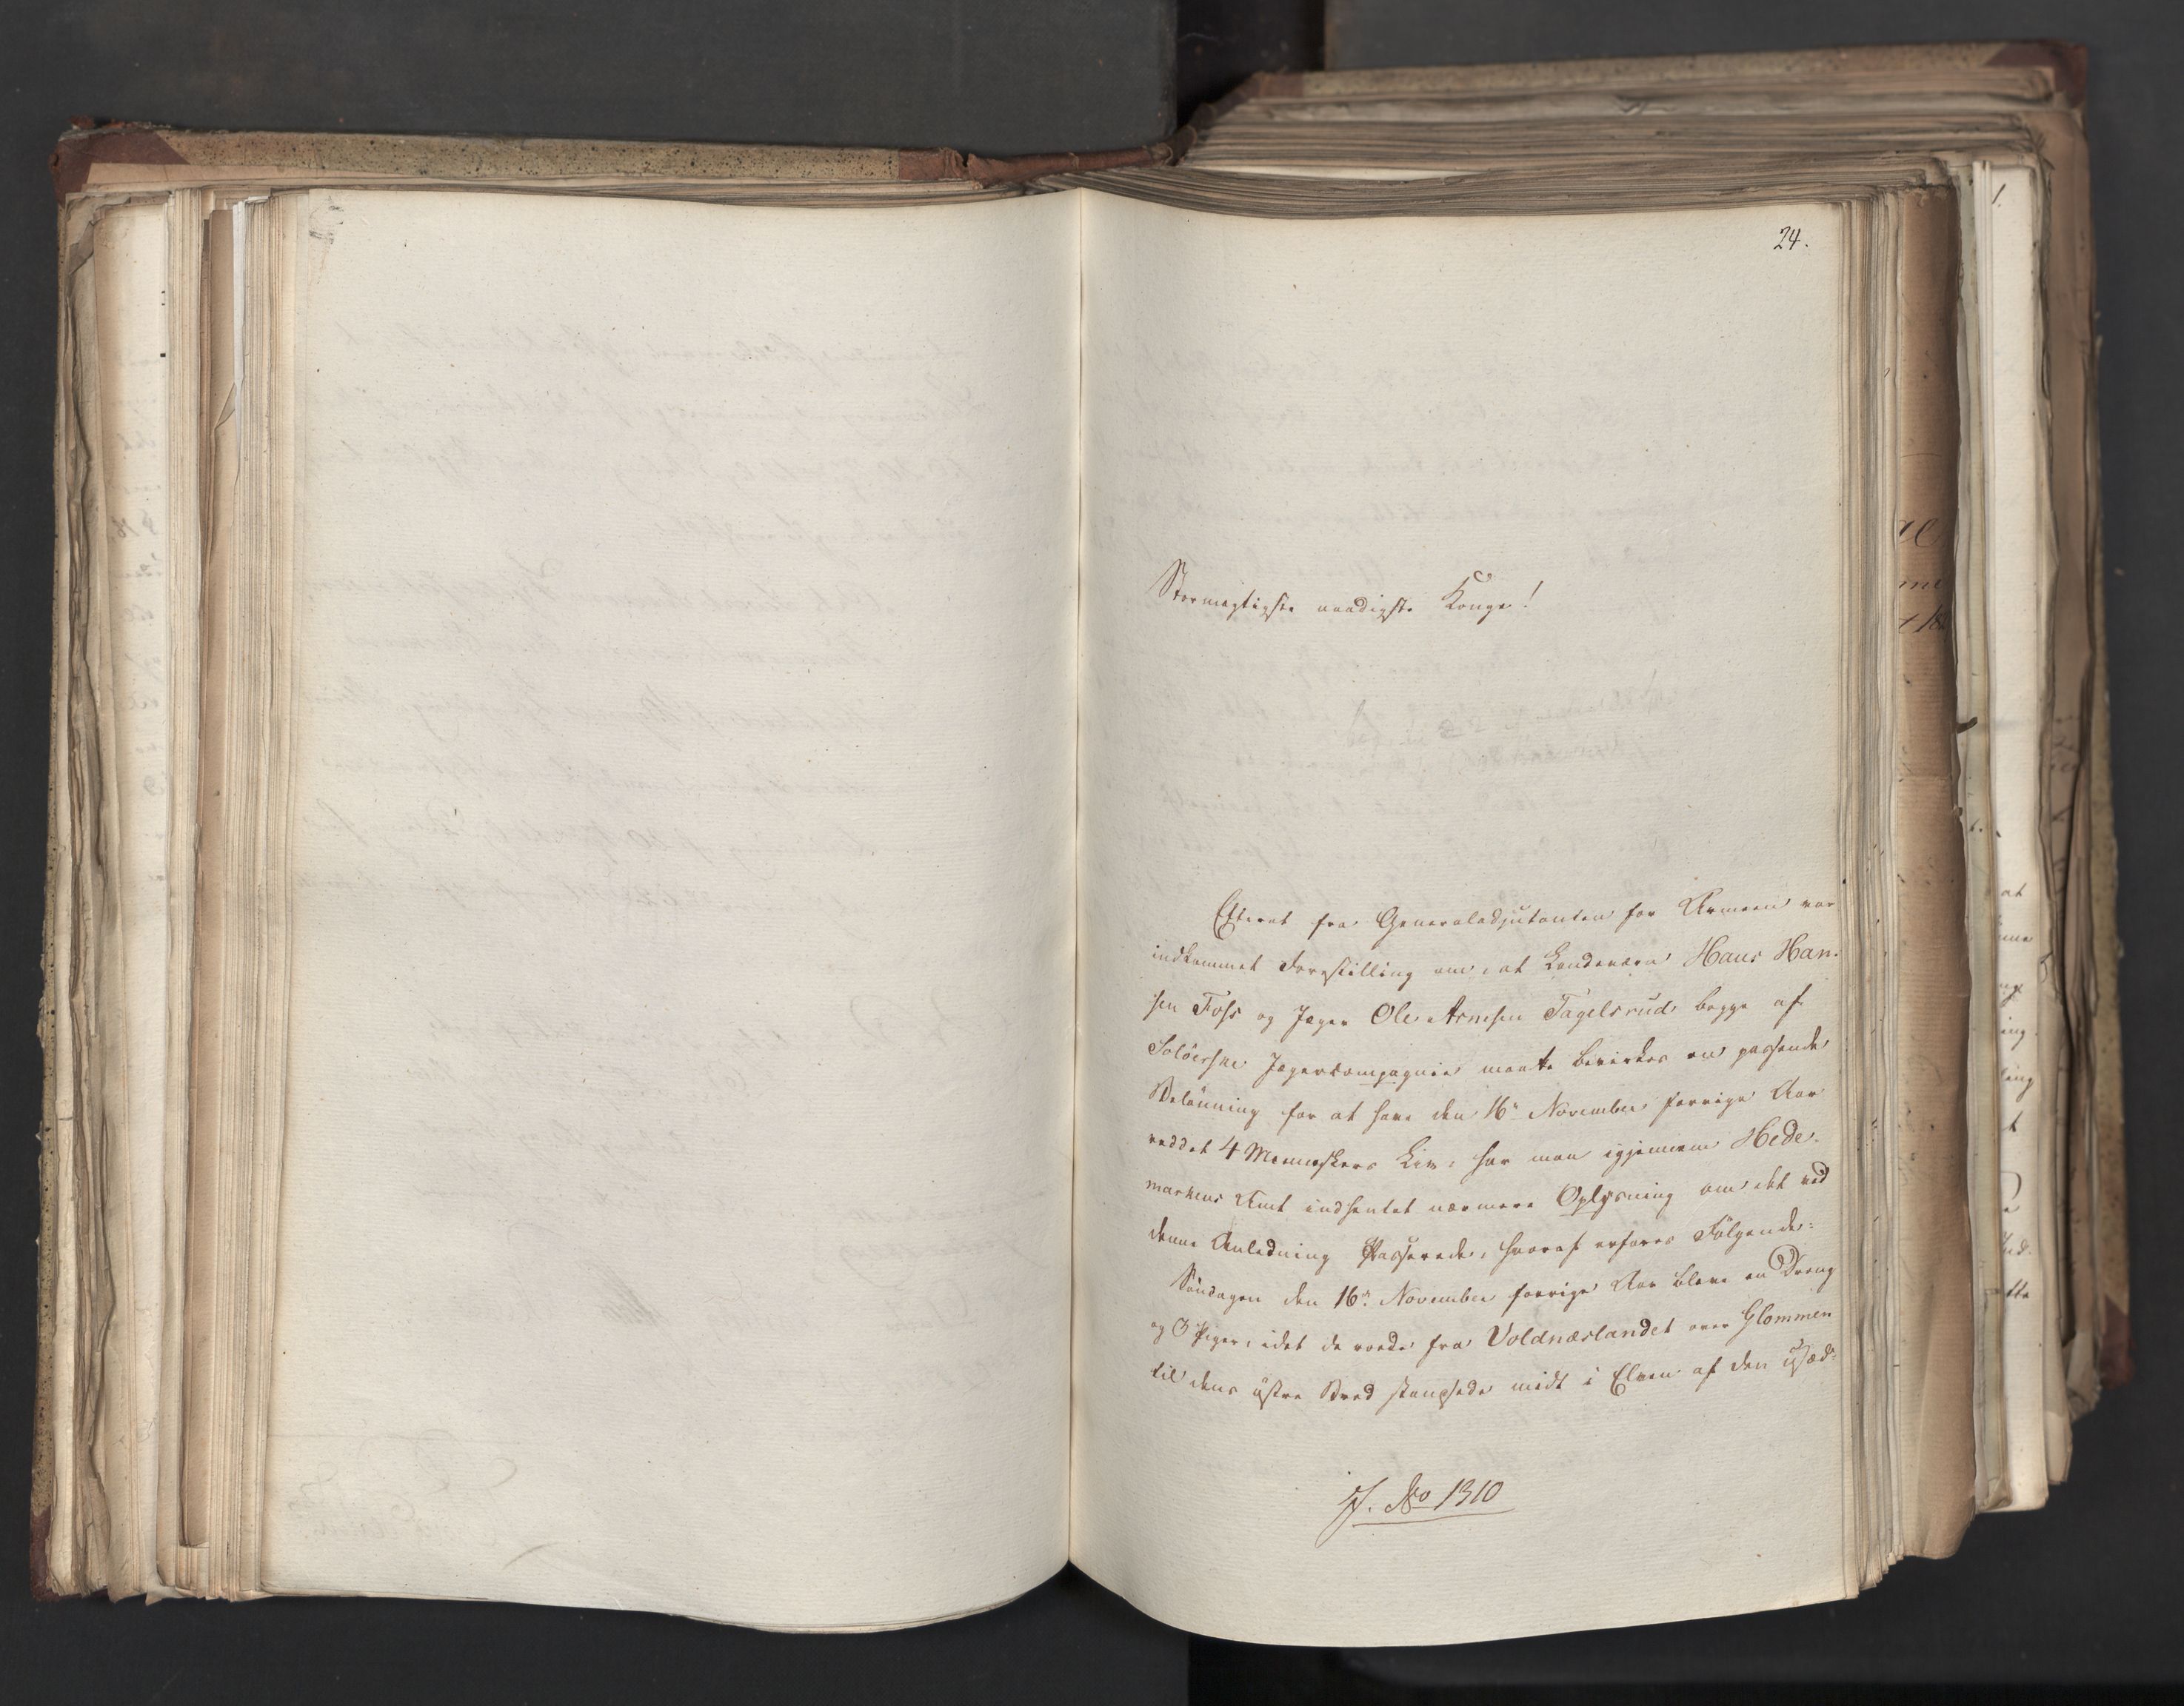 24.
Stormægtigste naadigste Konge!
Efterat fra Generaladjutanten for Armeen var
indkommet Forestilling om, at Landeværn Hans Han-
sen Foss og Jæger Ole Arnesen Tagelsrud begge af
Solöerske Jægercompagnie maatte bevirkes en passende
Belönning for at have den 16de November forrige Aar
reddet 4 Menneskers Liv, har man igjennem Hede-
markens Amt indhentet nærmere Oplysning om det ved
denne Anledning Passerede, hvoraf erfares Fölgende:
Söndagen den 16de November forrige Aar bleve en Dreng
og 3 Piger, idet de roede fra Voldnæslandet over Glommen
til dens östre Bred standsede midt i Elven af den
J. No 1310